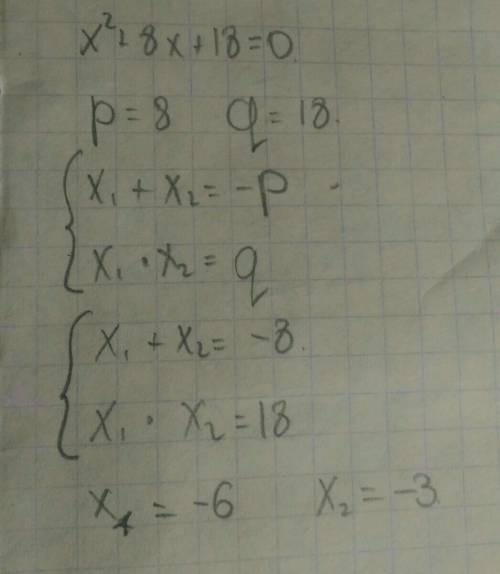 x²+8x+18=0
p=8 q=18.
x₁+x₂=-p
x₁·x₂=q
x₁+x₂=-8.
x₁·x₂=18
x₁=-6 x₂=-3